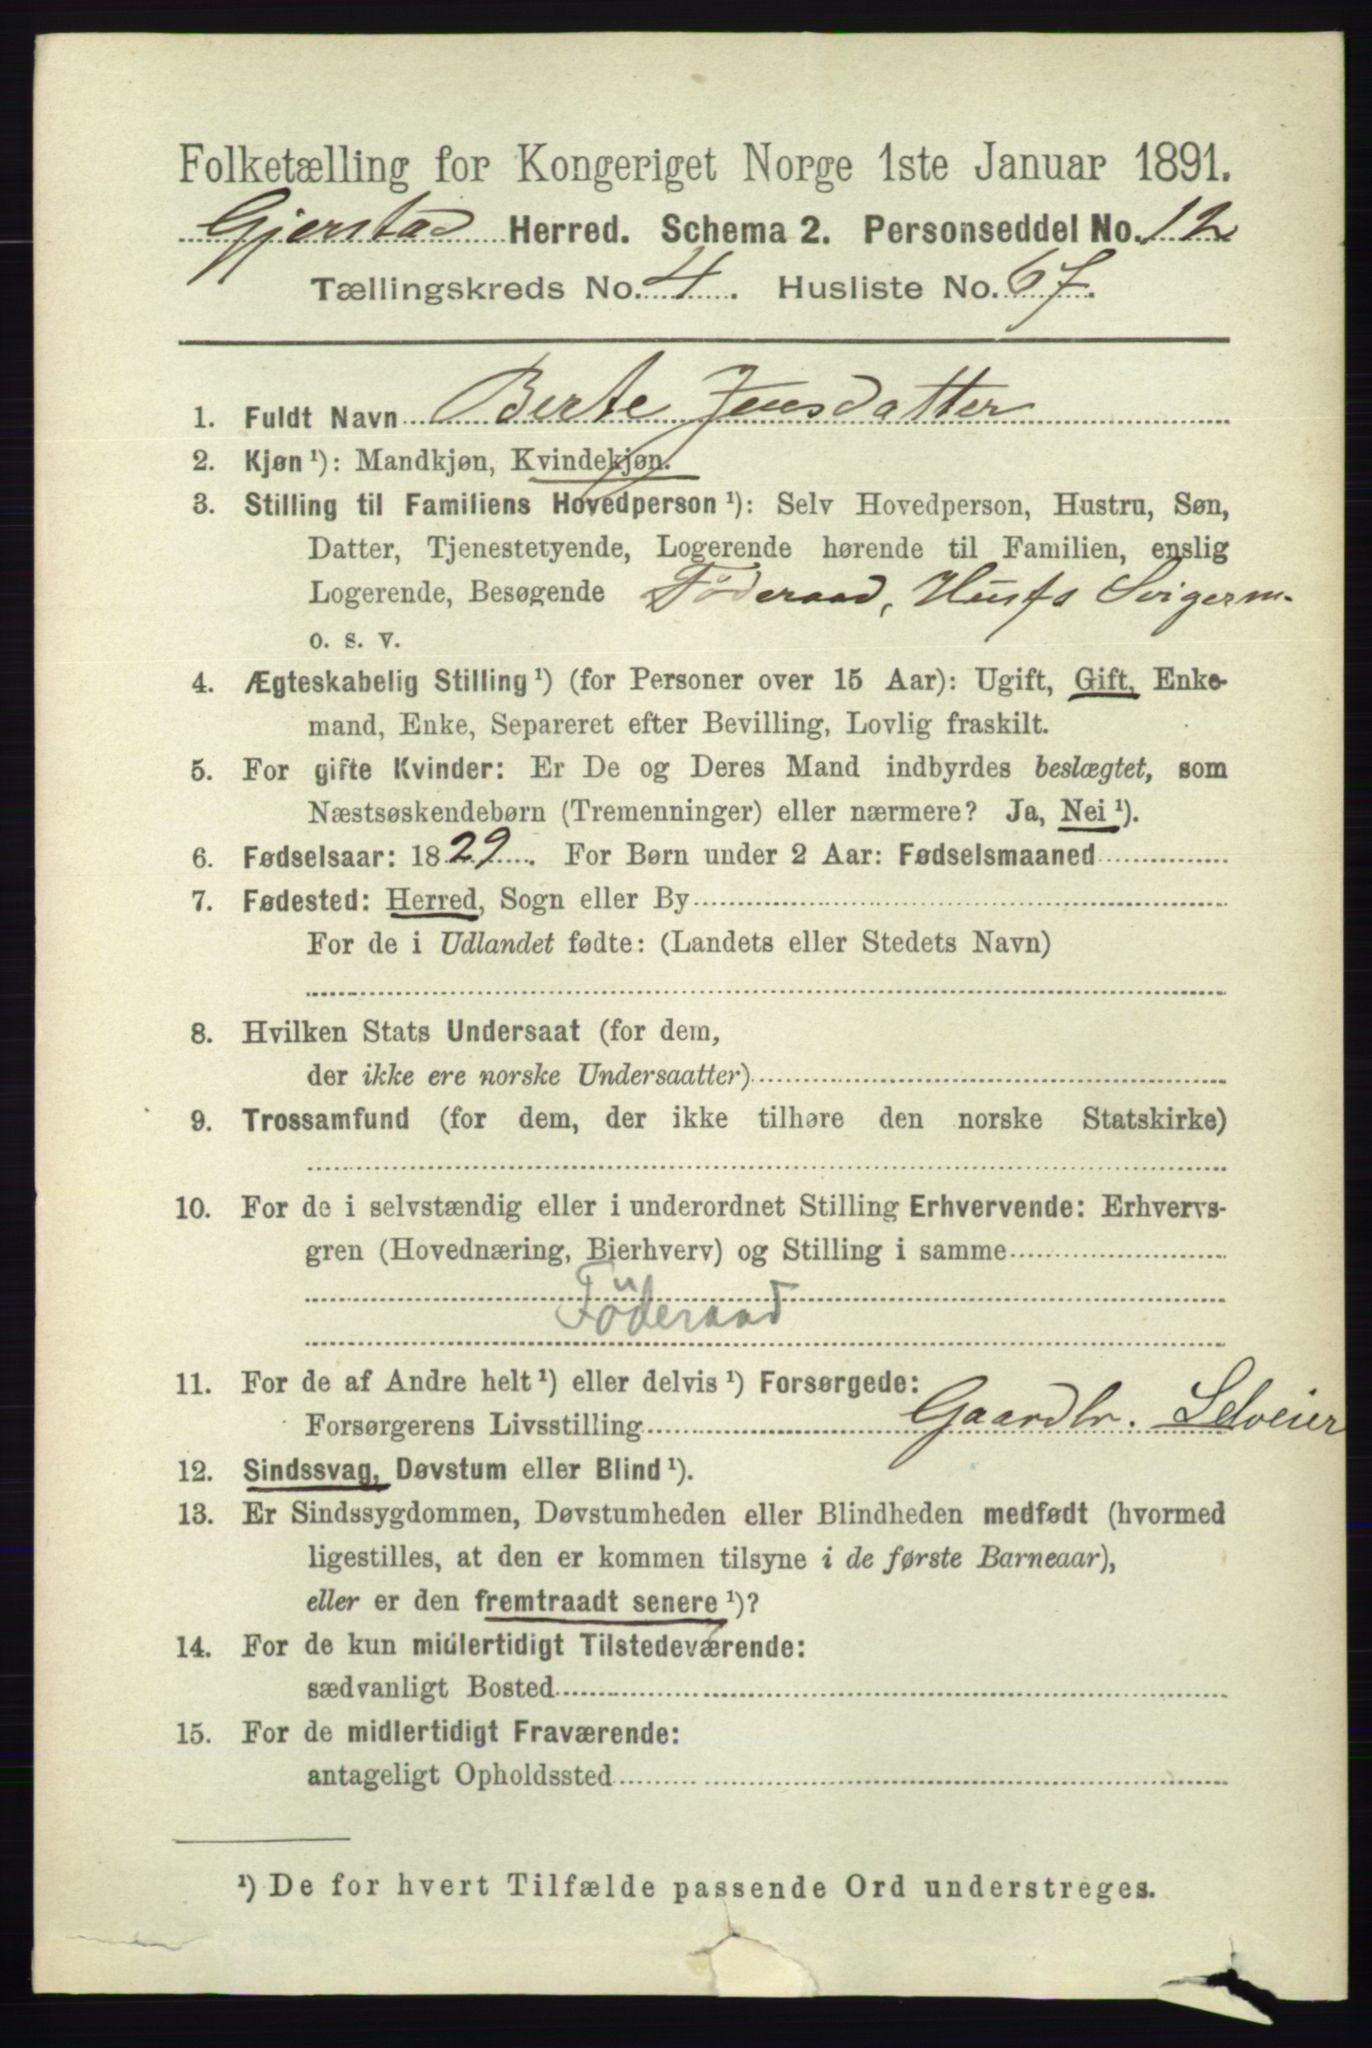 Folketælling for Kongeriget Norge 1ste Januar 1891.
Gjerstad Herred. Schema 2. Personseddel No. 12
Tællingskreds No. 4. Husliste No. 67.
1. Fuldt Navn Berte Jensdatter
2. Kjøn ¹): Mandkjøn, Kvindekjøn.
3. Stilling til Familiens Hovedperson ¹): Selv Hovedperson, Hustru, Søn,
Datter, Tjenestetyende, Logerende hørende til Familien, enslig
Logerende, Besøgende Föderaad, Husfs Svigerm.
o. s. v.
4. Ægteskabelig Stilling ¹) (for Personer over 15 Aar): Ugift, Gift, Enke-
mand, Enke, Separeret efter Bevilling, Lovlig fraskilt.
5. For gifte Kvinder: Er De og Deres Mand indbyrdes beslægtet, som
Næstsøskendebørn (Tremenninger) eller nærmere? Ja, Nei ¹).
6. Fødselsaar: 1829. For Børn under 2 Aar: Fødselsmaaned
7. Fødested: Herred, Sogn eller By
For de i Udlandet fødte: (Landets eller Stedets Navn)
8. Hvilken Stats Undersaat (for dem,
der ikke ere norske Undersaatter)
9. Trossamfund (for dem, der ikke tilhøre den norske Statskirke)
10. For de i selvstændig eller i underordnet Stilling Erhvervende: Erhvervs-
gren (Hovednæring, Bierhverv) og Stilling i samme
Föderaad
11. For de af Andre helt ¹) eller delvis ¹) Forsørgede:
Forsørgerens Livsstilling Gaardbr. Selveier
12. Sindssvag, Døvstum eller Blind ¹).
13. Er Sindssygdommen, Døvstumheden eller Blindheden medfødt (hvormed
ligestilles, at den er kommen tilsyne i de første Barneaar),
eller er den fremtraadt senere ¹)?
14. For de kun midlertidigt Tilstedeværende:
sædvanligt Bosted
15. For de midlertidigt Fraværende:
antageligt Opholdssted
¹) De for hvert Tilfælde passende Ord understreges.